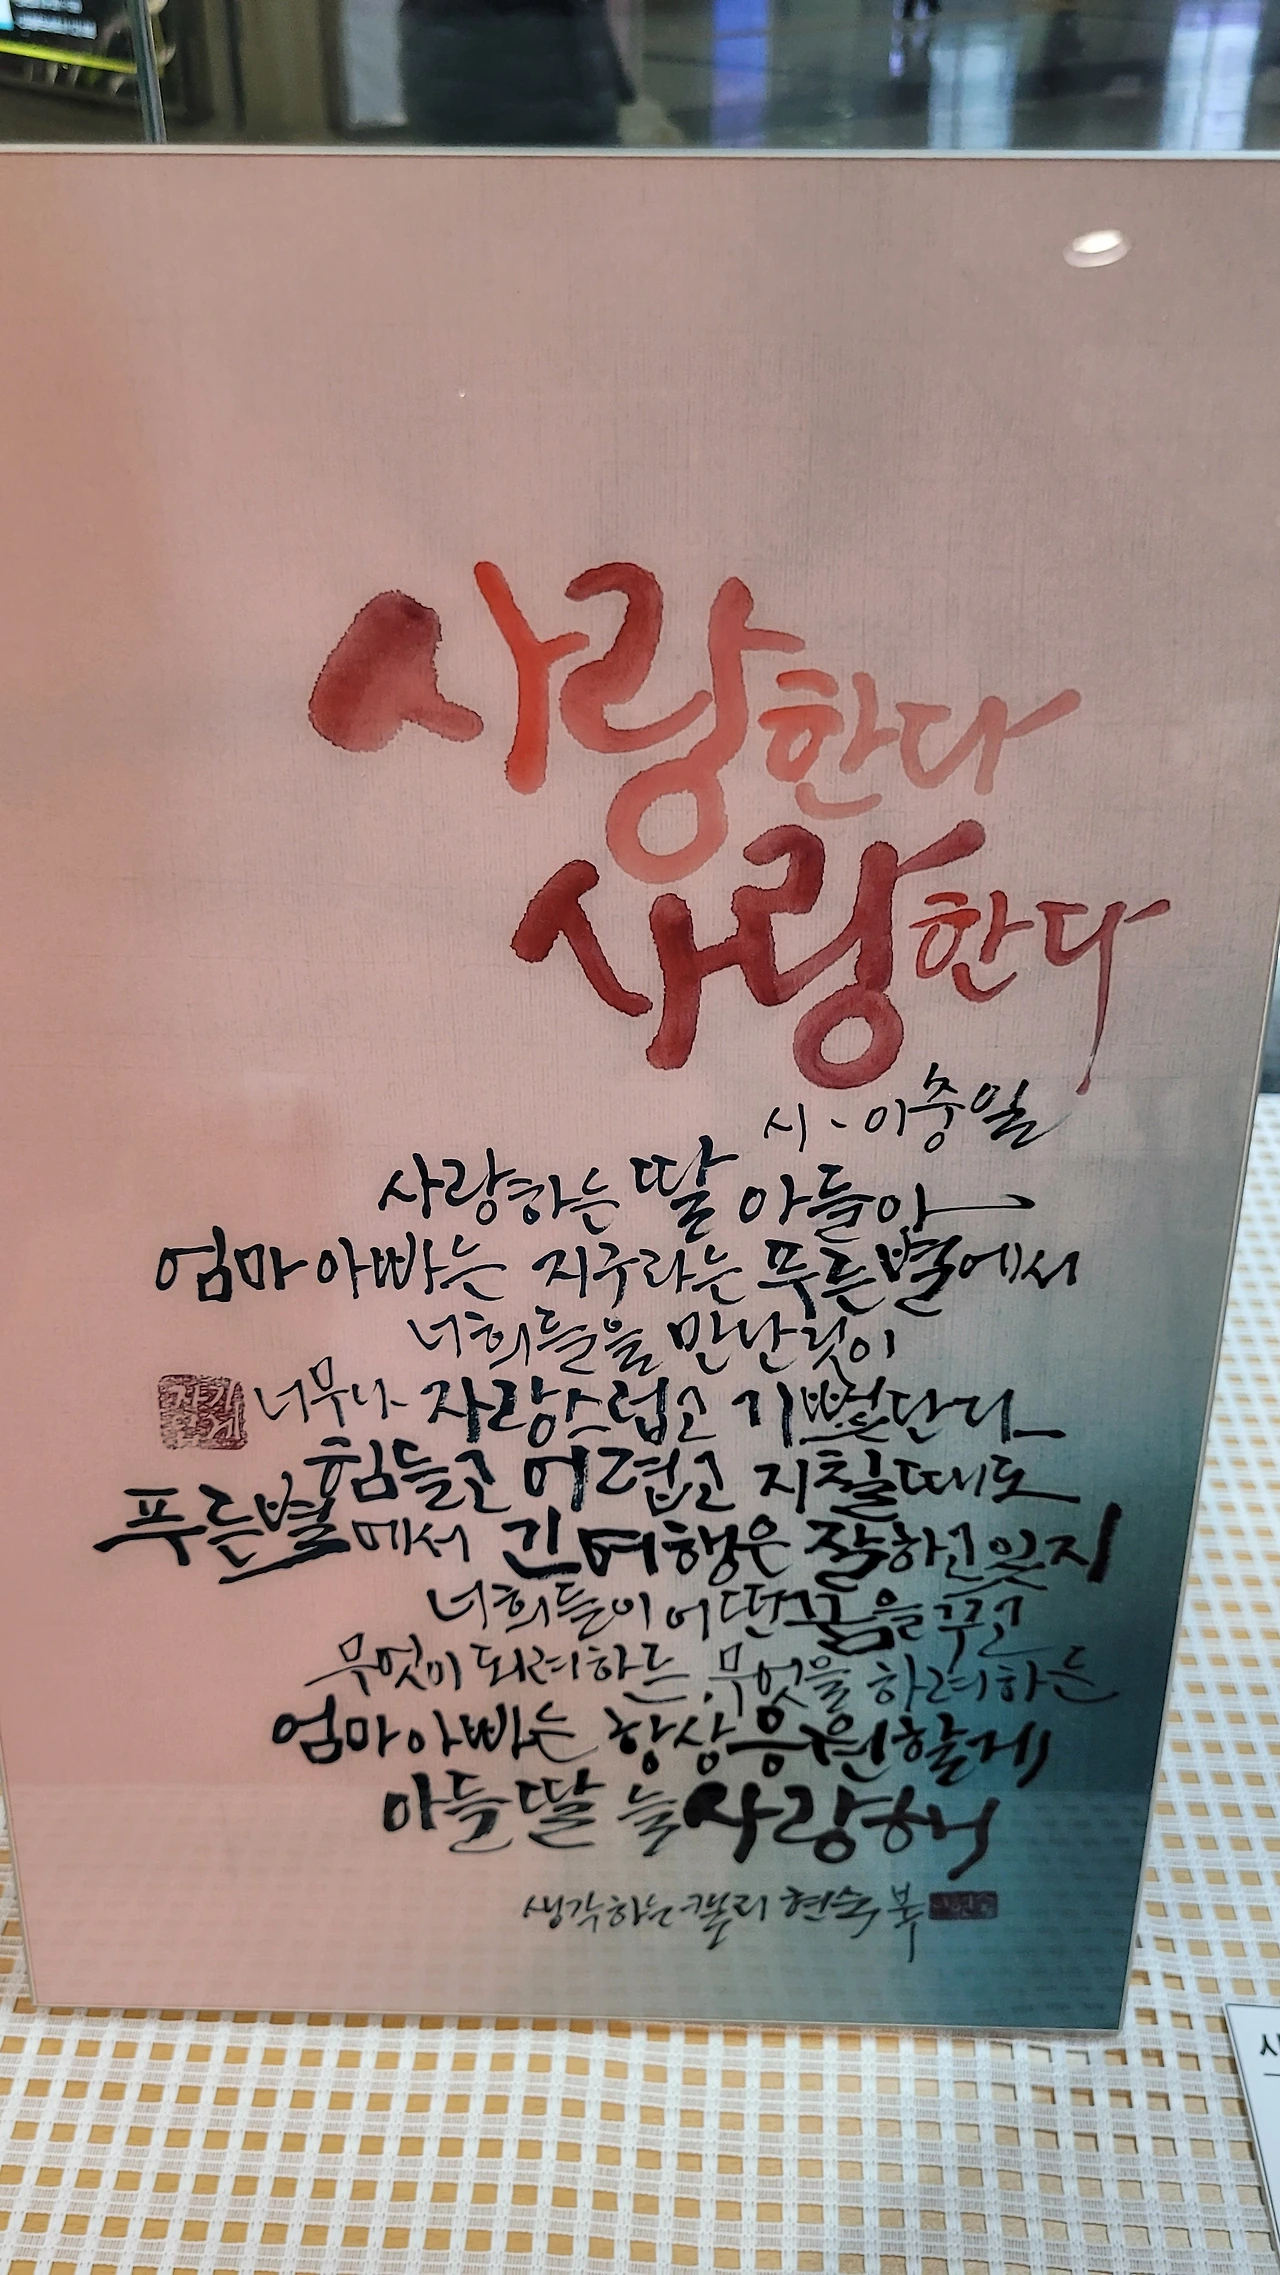 사랑한다
사랑한다
시 - 이충일
사랑하는 딸 아들아
엄마 아빠는 지구라는 푸른별에서
너희들을 만난것이
너무나 자랑스럽고 기쁘단다
힘들고 어렵고 지칠때도
푸른별에서 긴여행은 잘하고있지
너희들이 어떤꿈을 꾸고
무엇이 되려하든 무엇을 하려하든
엄마 아빠는 항상 응원할게
아들 딸 늘 사랑해
생각하는 캘리 현숙 봄